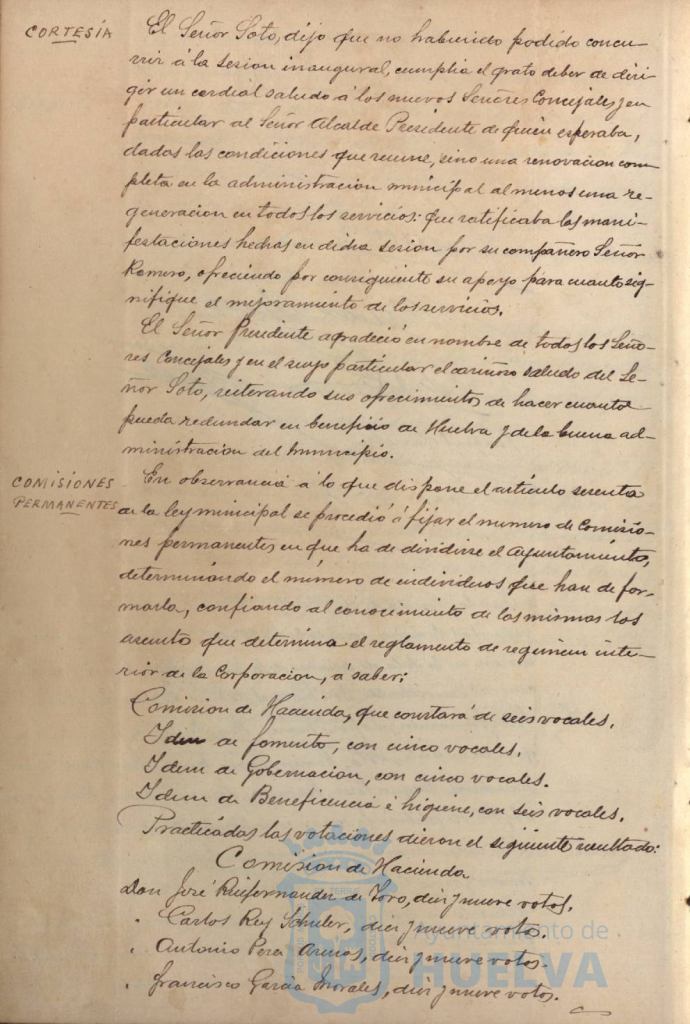 CORTESÍA
El Señor Soto, dijo que no habiendo podido concu-
rrir á la sesion inaugural, cumplia el grato deber de diri
gir un cordial saludo á los nuevos Señores Concejales y en
particular al Señor Alcalde Presidente de quien esperaba,
dadas las condiciones que reune, sino una renovacion com
pleta en la administracion municipal al menos una re-
generacion en todos los servicios: que ratificaba las mani-
festaciones hechas en dicha sesion por su compañero Señor
Romero, ofreciendo por consiguiente su apoyo para cuanto sig-
nifique el mejoramiento de los servicios.
El Señor Presidente agradeció en nombre de todos los Seño-
res Concejales y en el suyo particular el cariñoso saludo del Se-
ñor Soto, reiterando sus ofrecimientos de hacer cuanto
pueda redundar en beneficio de Huelva y de la buena ad-
ministracion del Municipio.
COMISIONES
PERMANENTES
En observancia á lo que dispone el artículo sesenta
de la ley municipal se procedió á fijar el numero de Comisio-
nes permanentes en que ha de dividirse el Ayuntamiento,
determinando el número de individuos que han de for-
marla, confiando al conocimiento de las mismas los
asunto que determina el reglamento de regimen inte-
rior de la Corporacion, á saber:
Comision de Hacienda, que constará de seis vocales.
Idem de fomento, con cinco vocales.
Idem de Gobernacion, con cinco vocales.
Idem de Beneficencia é higiene, con seis vocales.
Practicadas las votaciones dieron el siguiente resultado:
Comision de Hacienda
Don José de Toro, diez y nueve votos.
" Carlos Rey diez y nueve votos.
" Antonio diez y nueve votos.
" Francisco Garcia Morales, diez y nueve votos.
Ayuntamiento de
HUELVA